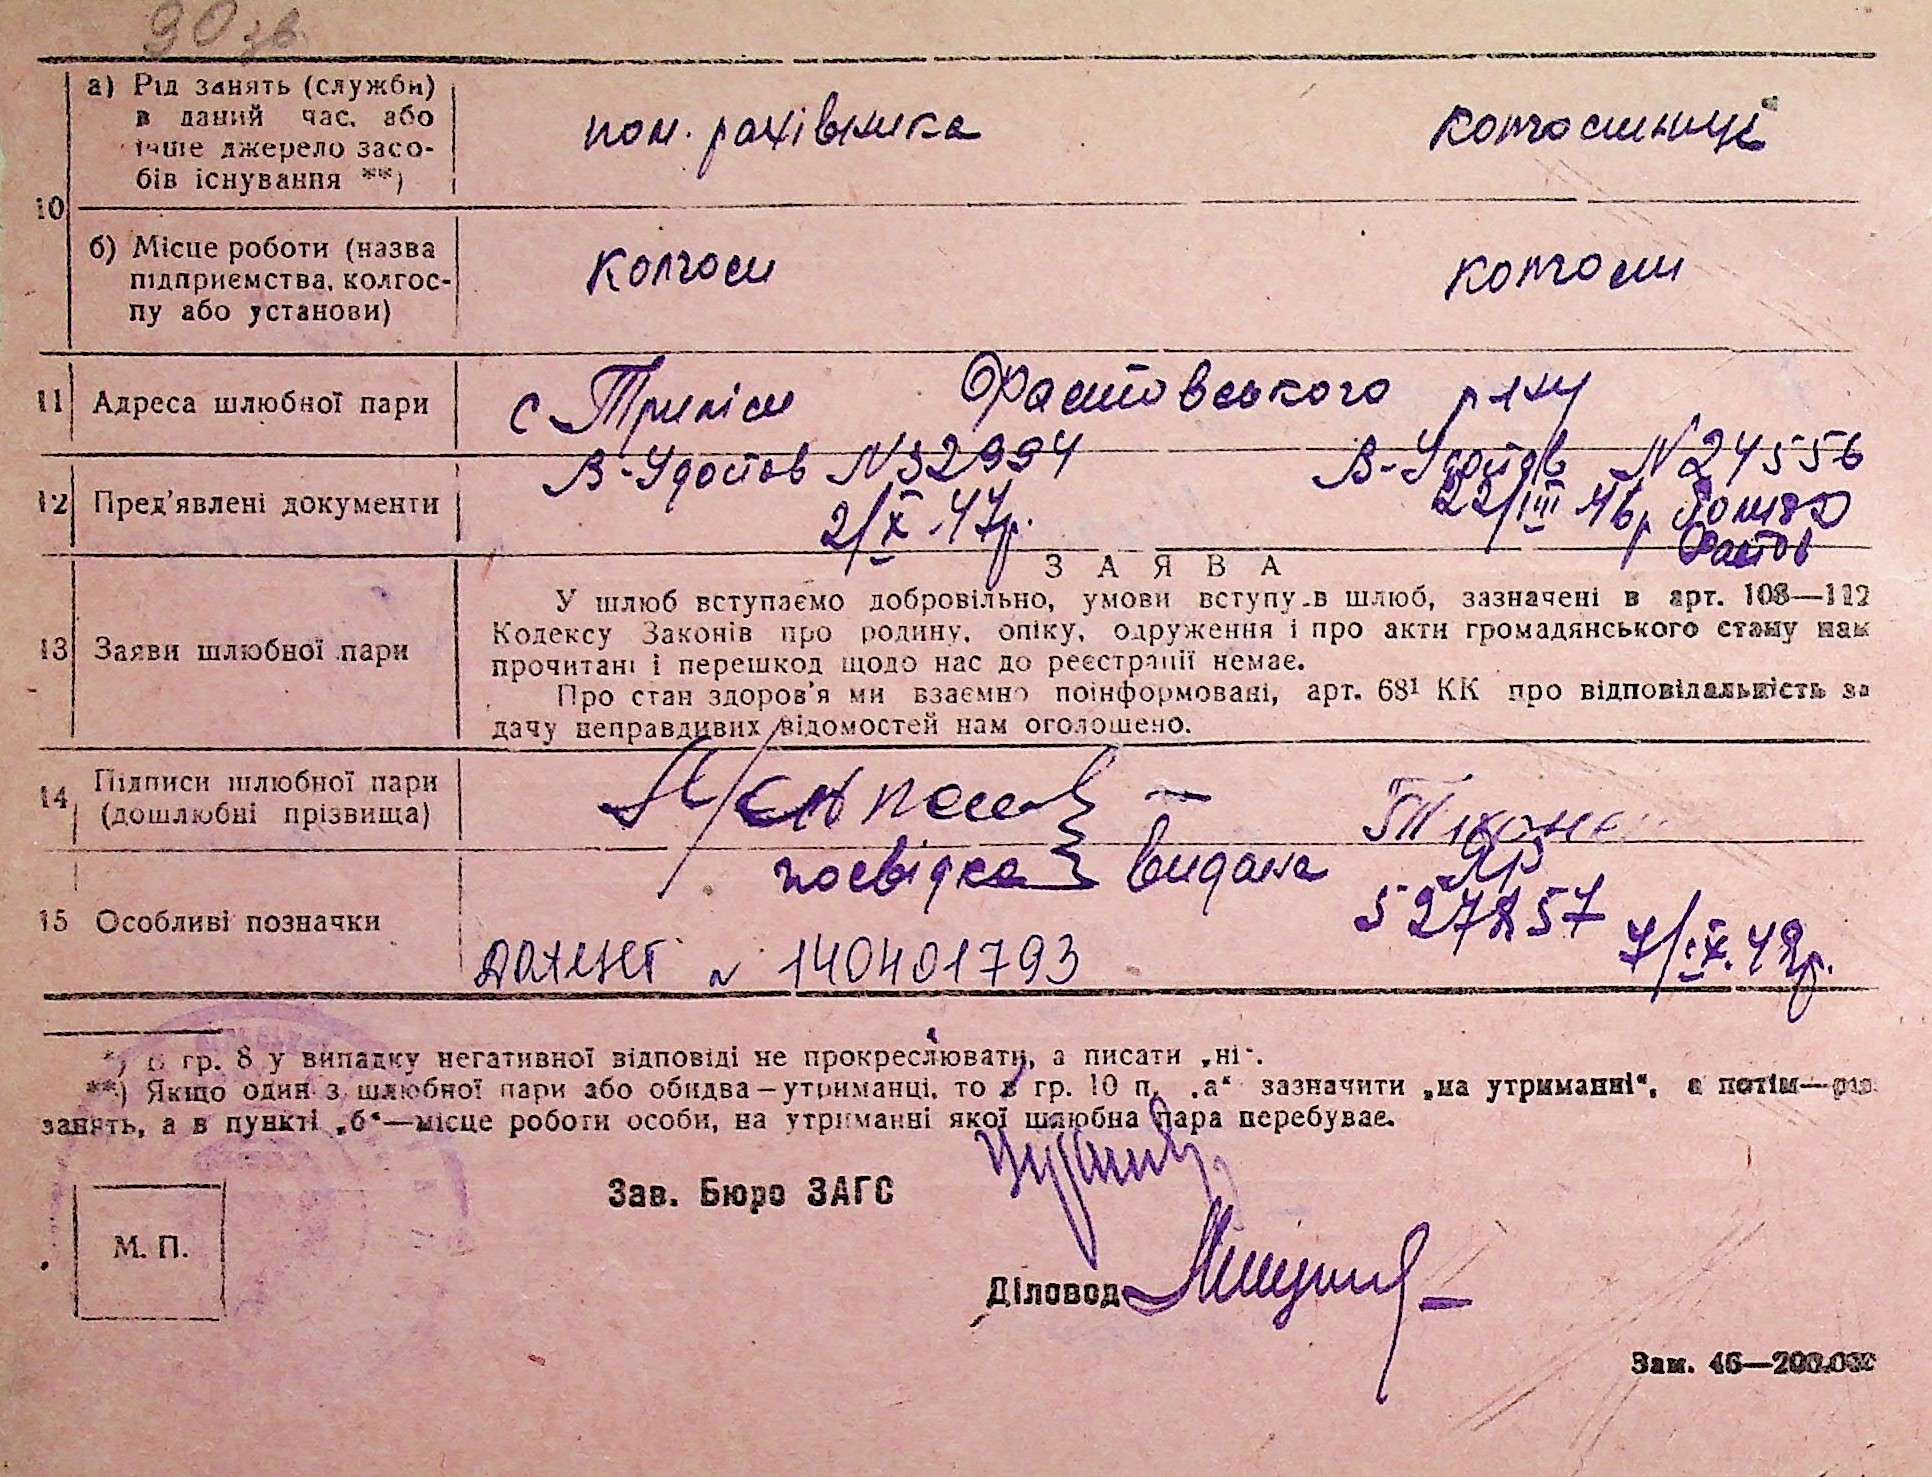 90 зв.
10
а) Рід занять (служби) пом. рахівника колгоспниця
в даний час, або
інше джерело засо-
бів існування **)
б) Місце роботи (назва колгосп колгосп
підприємства, колгос-
пу або установи)
11 Адреса шлюбної пари с Триліси Фастовського р-ну
12 Пред'явлені документи В-Удостов N 32994 В-Удостов N 24556
2/X.47р. 22/III 46р
Фастов
ЗАЯВА
13 Заяви шлюбної пари
У шлюб вступаємо добровільно, умови вступу в шлюб, зазначені в арт. 108—112
Кодексу Законів про родину, опіку, одруження і про акти громадянського стану нам
прочитані і перешкод щодо нас до реєстрації немає.
Про стан здоров'я ми взаємно поінформовані, арт. 68¹ КК про відповідальність за
дачу неправдивих відомостей нам оголошено.
14 Підписи шлюбної пари
(дошлюбні прізвища)
15 Особливі позначки
посвідка видана
527257 7/IX.48р.
N 140401793
*) В гр. 8 у випадку негативної відповіді не прокреслювати, а писати „ні".
**) Якщо один з шлюбної пари або обидва—утриманці, то в гр. 10 п. „а" зазначити „на утриманні", а потім—рід
занять, а в пункті „б"—місце роботи особи, на утриманні якої шлюбна пара перебуває.
Зав. Бюро ЗАГС
М. П.
Діловод
Зам. 46—200.000